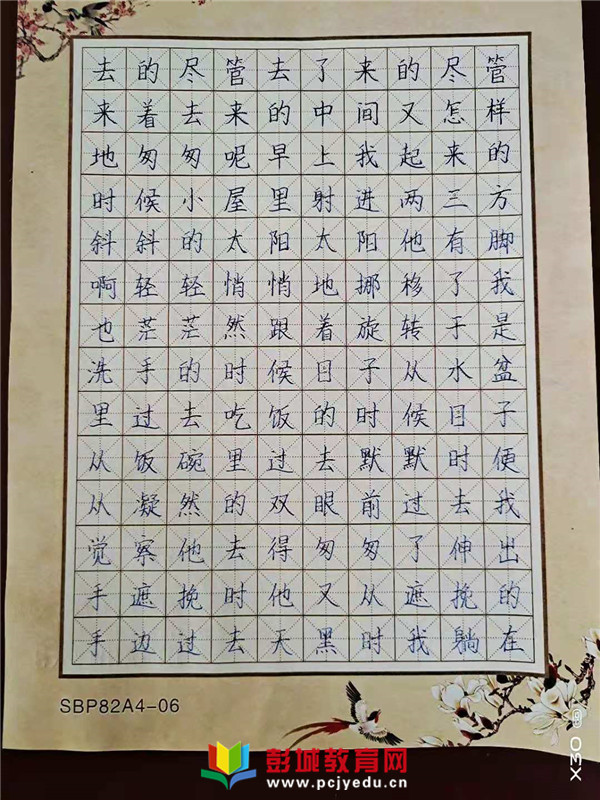 去的尽管去了来的尽管
来着去来的中间又怎样
地匆匆呢早上我起来的
时候小屋里射进两三方
斜斜的太阳太阳他有脚
啊轻轻悄悄地挪移了我
也茫茫然跟着旋转于是
洗手的时候日子从水盆
里过去吃饭的时候日子
从饭碗里过去默默时便
从凝然的双眼前过去我
觉察他去得匆匆了伸出
手遮挽时他又从遮挽的
手边过去天黑时我躺在
SBP82A4-06
彭城教育网
www.pcjyedu.cn
X30